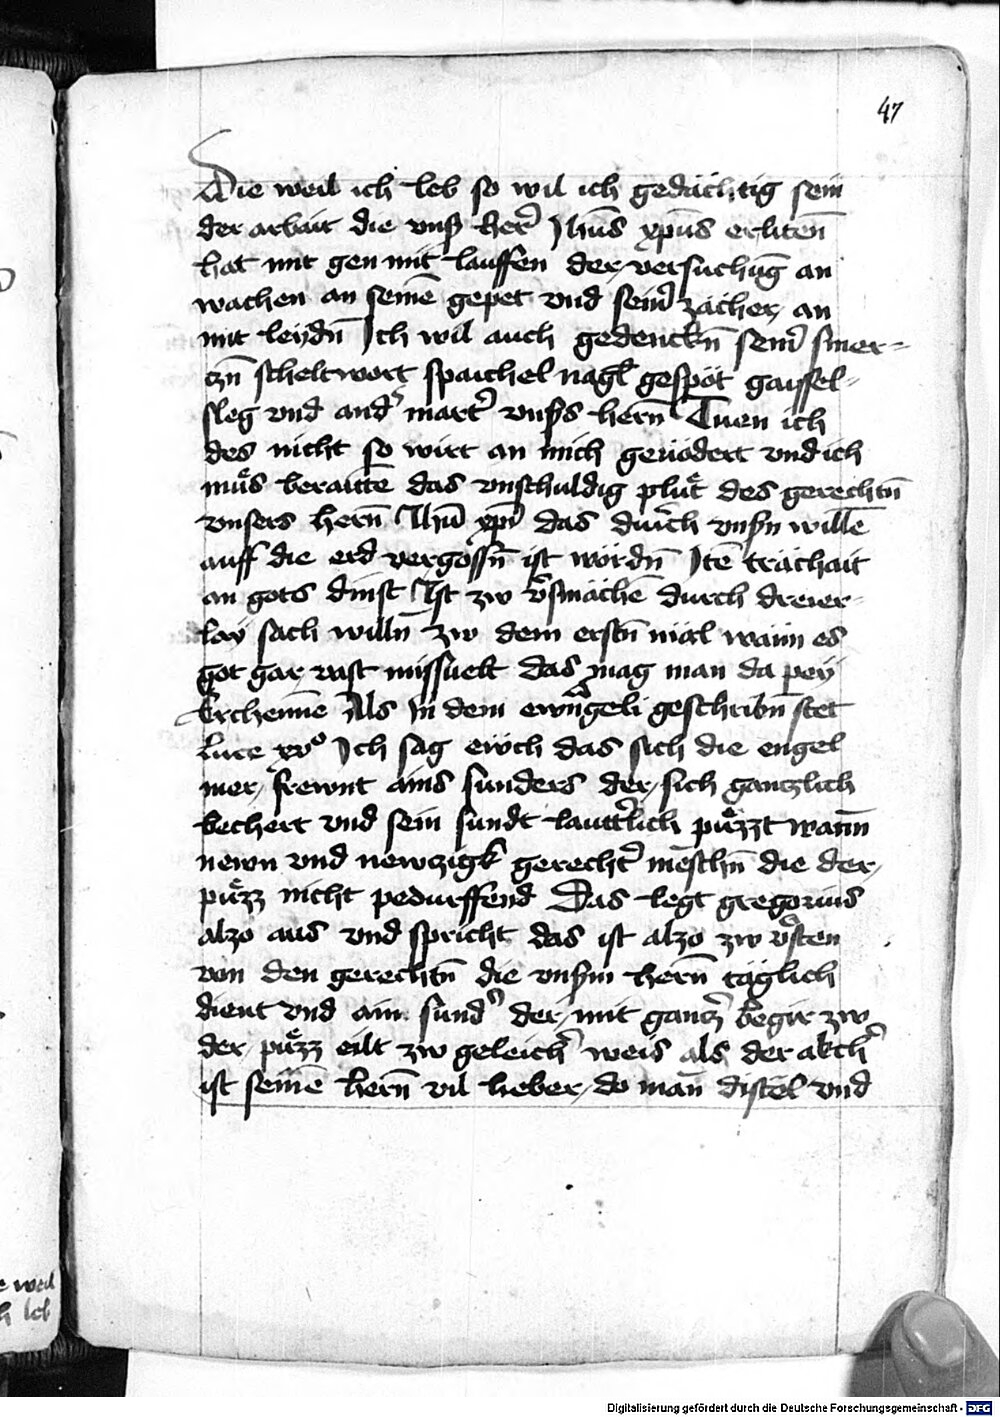 47
Die weil ich leb so wil ich gedächtig sein
der arbait die unß her̄ Jhūs xpūs erlitēn
hat mit gen mit lauffen der versuchūg an
wachen an seinē gepet vnd sein̄ zächer an
mit leydn̄ Ich wil auch gedenckn̄ sein̄ smer-
czn̄ scheltwort spaichel nagl̄ gespöt gaissel-
sleg vnd and̄ mart̄ vnsʒs hern̄ Tuen ich
des nicht so wirt an mich geuödert vnd ich
müs beraitē das vnschuldig plut des gerechtn̄
vnsers hern̄ Jhū xp̄i das durch vnsʒn willē
auff die erd vergossn̄ ist wordn̄ Itē trächait
an gots dinst Ist zw v̄smähē durch dreier-
lay sach willn̄ zw dem erstn̄ mäl wann es
got gar vast missuelt das mag man da pey
Erchennē Als In dem ewāngeli geschribn̄ stet
Luce xvº Ich sag ewch das sich die engel
mer frewnt ains sunders der sich gantzlich
bechert vnd sein sundt lautt̄lich püzzt wann
newn vnd newczigk gerecht̄ mēschn̄ die der
püzz nicht pedurffend Das legt gregorius
alzo aus vnd spricht das ist alzo zw v̄sten
von den gerechtn̄ die vnsʒm hern̄ täglich
dient vnd ain sund̄ der mit gancz̄ begir zw
der püzz eilt zw geleich̄ weis als der akch̄
ist seinē hern̄ vil lieber do man distel vnd
e weil
h leb
Digitalisierung gefördert durch die Deutsche Forschungsgemeinschaft - DFG